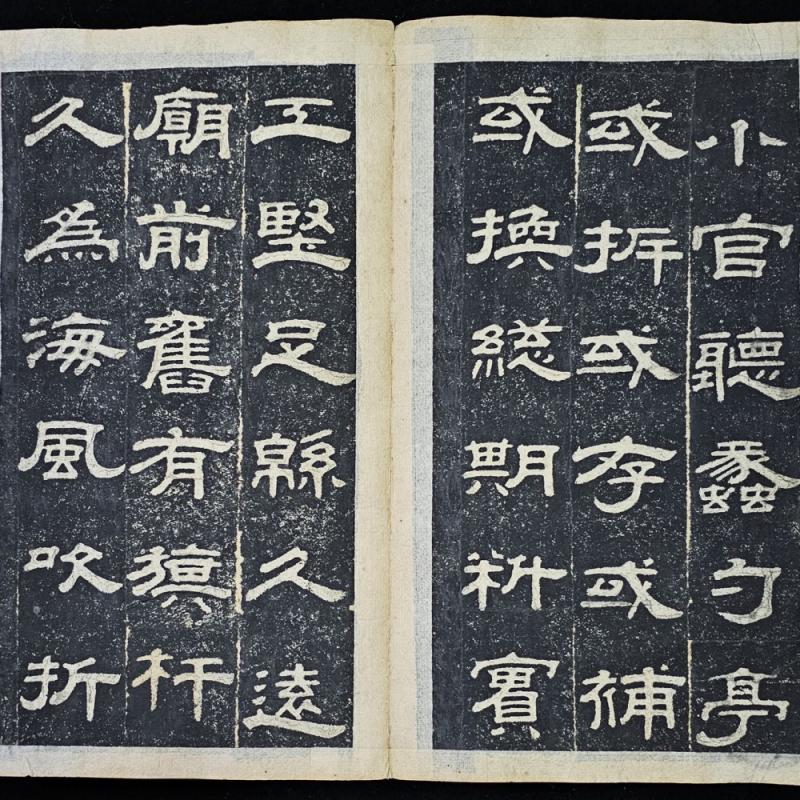 小官聽蠡勺亭
或拆或存或補
或換緫期料實
工堅足緜久遠
廟前舊有旗杆
久為海風吹折